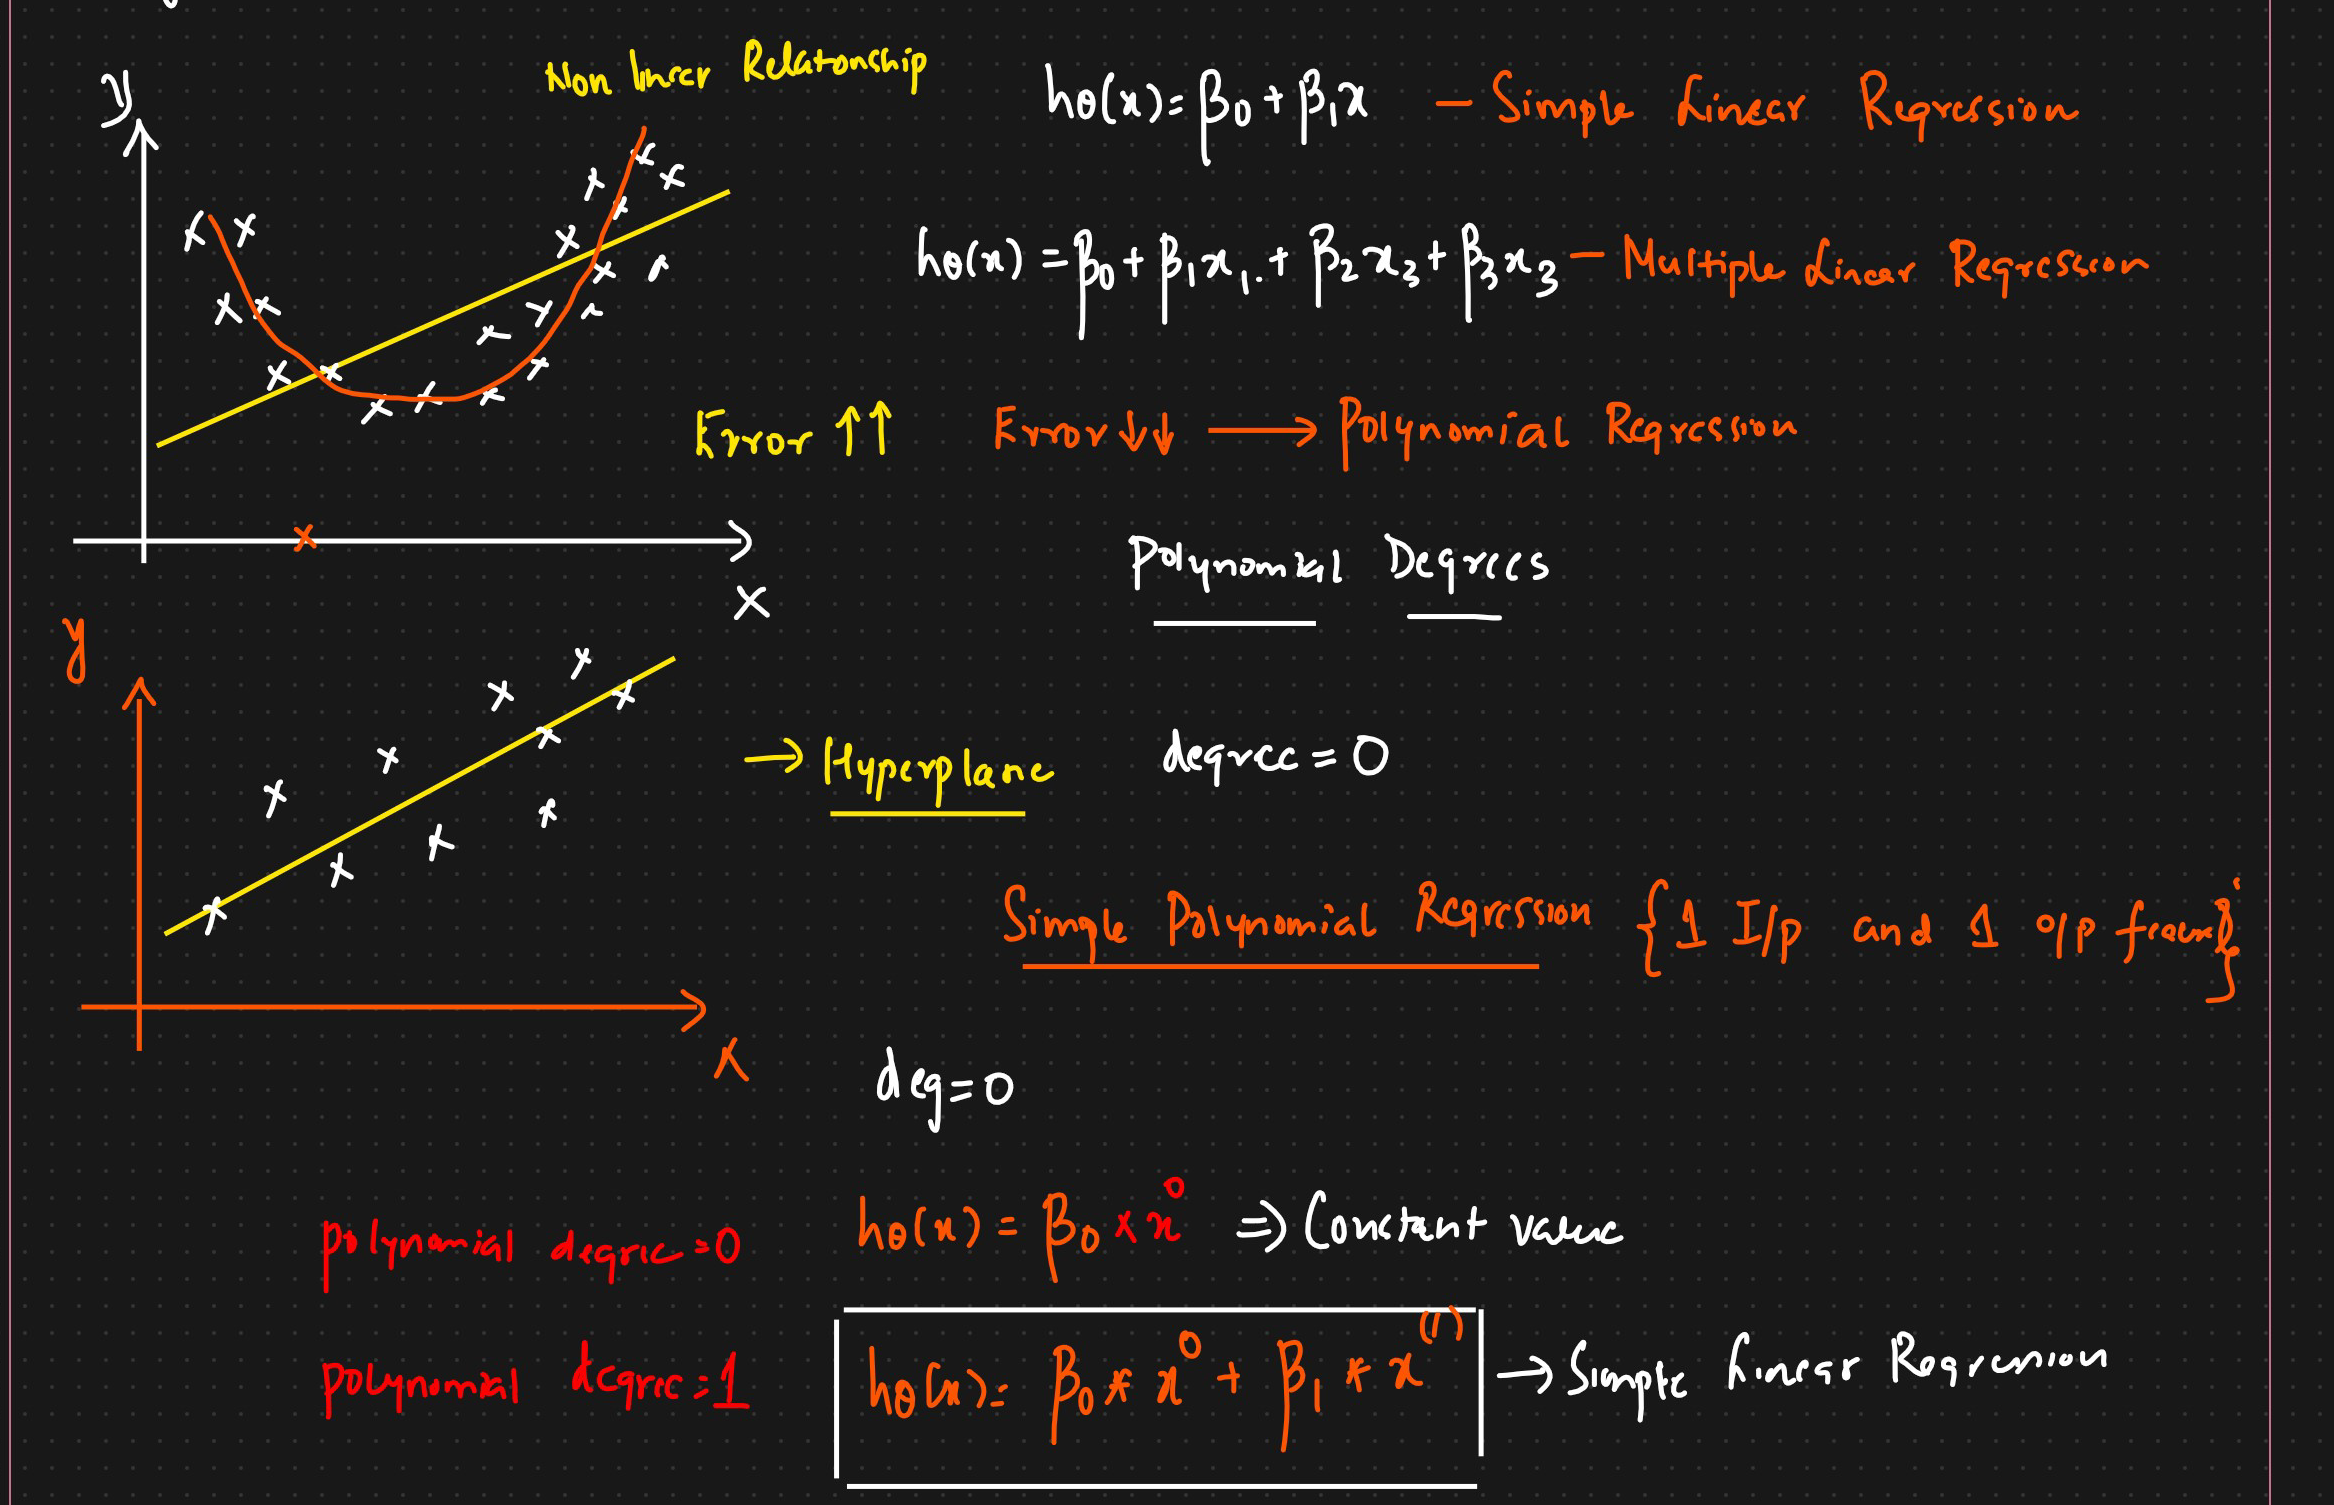 y
Non linear Relationship
hθ(x) = β0 + β1x – Simple Linear Regression
hθ(x) = β0 + β1x1. + β2x2 + β3x3 – Multiple Linear Regression
Error ↑↑ Error ↓↓ → Polynomial Regression
X
Polynomial Degrees
y
→ Hyperplane degree = 0
Simple Polynomial Regression {1 I/p and 1 o/p feature}
x
deg=0
polynomial degree = 0 hθ(x) = β0 × x^0 ⇒ Constant value
polynomial degree = 1 hθ(x) = β0 * x^0 + β1 * x^(1) → Simple Linear Regression